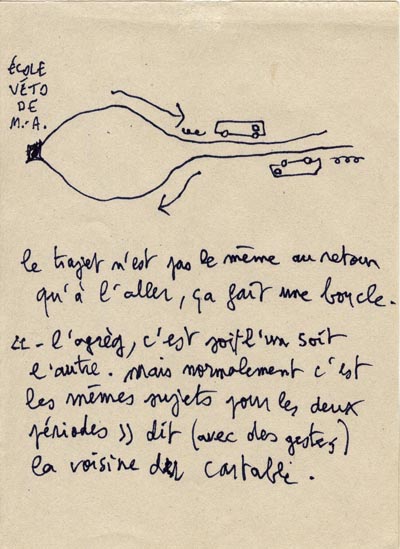 ÉCOLE
VÉTO
DE
M.-A.
le trajet n'est pas le même au retour
qu'à l'aller, ça fait une boucle.
« - l'agrèg, c'est soit l'un soit
l'autre. Mais normalement c'est
les mêmes sujets pour les deux
périodes » dit (avec des gestes)
la voisine du cartable.